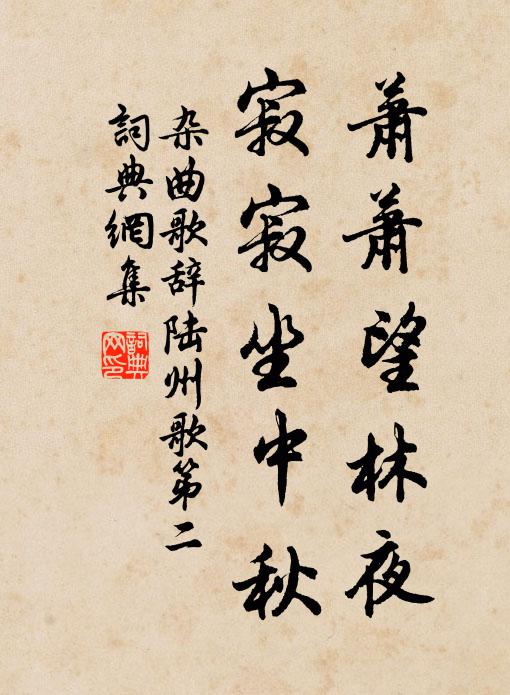 萧萧望林夜
寂寂坐中秋
杂曲歌辞陆州歌第二
詞典網集
詞典
网印